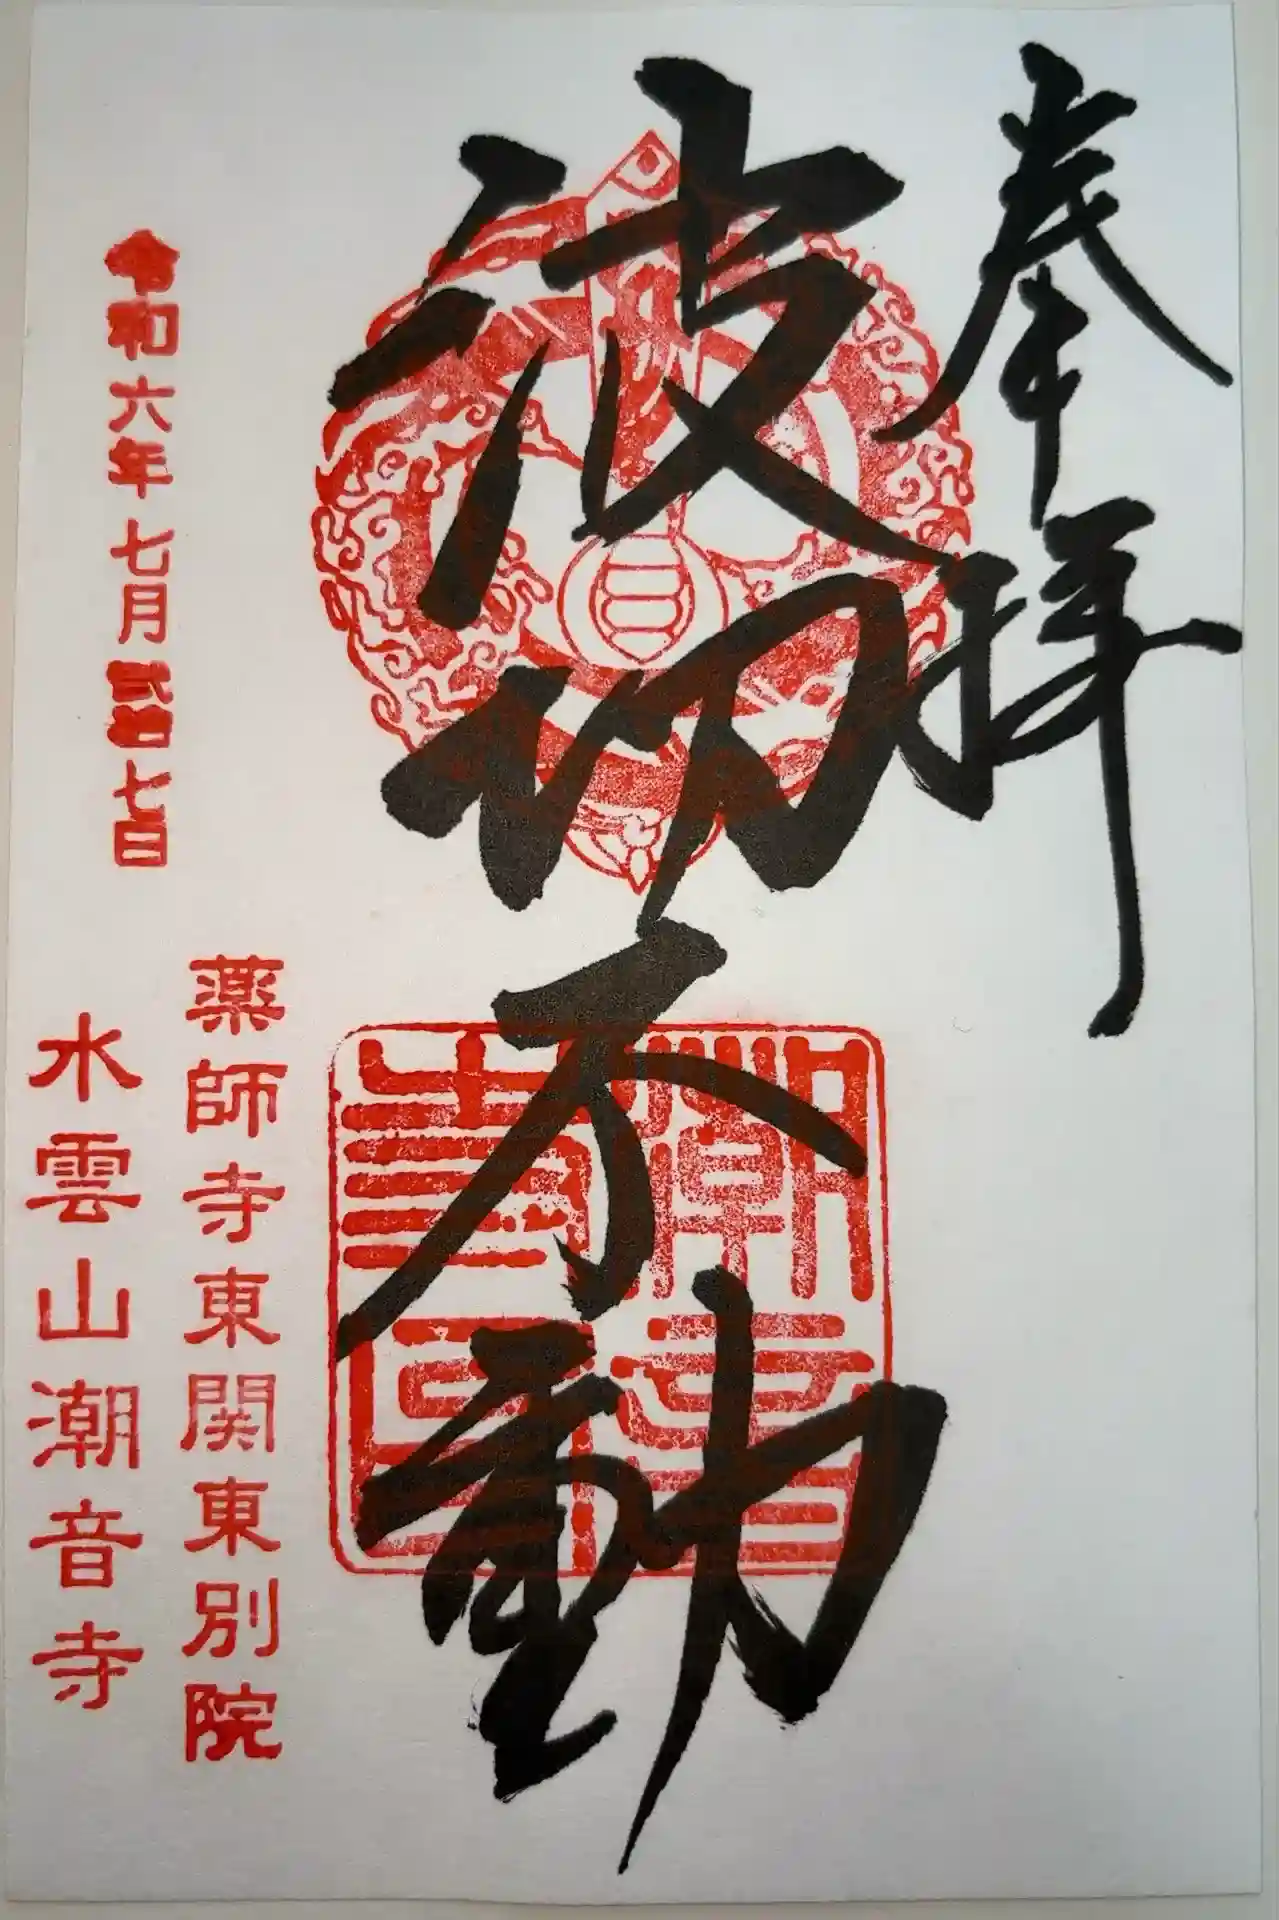 奉拝
波切不動
令和六年七月弐拾七日
薬師寺東関東別院
水雲山潮音寺